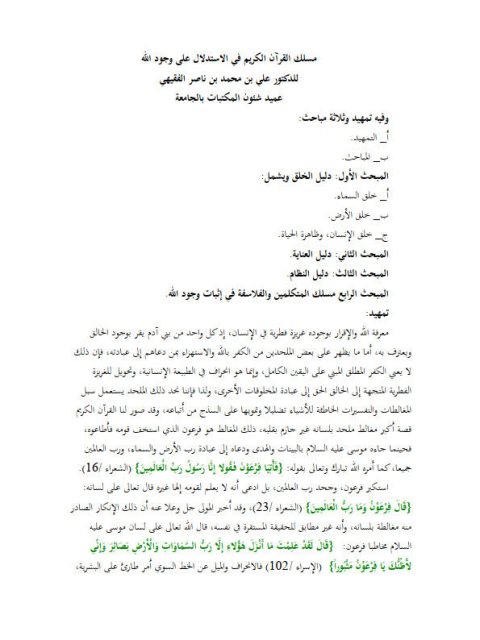 مسلك القرآن الكريم في الاستدلال على وجود الله
للدكتور علي بن محمد بن ناصر الفقيهي
عميد شئون المكتبات بالجامعة
وفيه تمهيد وثلاثة مباحث:
أ_ التمهيد.
ب_ المباحث.
المبحث الأول: دليل الخلق ويشمل:
أ_ خلق السماء.
ب_ خلق الأرض.
ج_ خلق الإنسان، وظاهرة الحياة.
المبحث الثاني: دليل العناية.
المبحث الثالث: دليل النظام.
المبحث الرابع مسلك المتكلمين والفلاسفة في إثبات وجود الله.
تمهيد:
معرفة الله والإقرار بوجوده غريزة فطرية في الإنسان، إذ كل واحد من بني آدم يقر بوجود الخالق
ويعترف به، أما ما يظهر على بعض الملحدين من الكفر بالله والاستهزاء بمن دعاهم إلى عبادته، فإن ذلك
لا يعني الكفر المطلق المبني على اليقين الكامل، وإنما هو انحراف في الطبيعة الإنسانية، وتحويل للغريزة
الفطرية المتجهة إلى الخالق الحق إلى عبادة المخلوقات الأخرى، ولذا فإننا نجد ذلك الملحد يستعمل سبل
المغالطات والتفسيرات الخاطئة للأشياء تضليلا وتمويها على السذج من أتباعه، وقد صور لنا القرآن الكريم
قصة أكبر مغالط ملحد بلسانه غير جازم بقلبه، ذلك المغالط هو فرعون الذي استخف قومه فأطاعوه،
فحينما جاءه موسى عليه السلام بالبينات والهدى ودعاه إلى عبادة رب الأرض والسماء، ورب العالمين
جميعا، كما أمره الله تبارك وتعالى بقوله: {فَأْتِيَا فِرْعَوْنَ فَقُولا إِنَّا رَسُولُ رَبِّ الْعَالَمِينَ} (الشعراء /16).
استكبر فرعون، وجحد رب العالمين، بل ادعى أنه لا يعلم لقومه إلها غيره قال تعالى على لسانه:
{قَالَ فِرْعَوْنُ وَمَا رَبُّ الْعَالَمِينَ} (الشعراء /23)، وقد أخبر المولى جل وعلا عنه أن ذلك الإنكار الصادر
منه مغالطة بلسانه، وأنه غير مطابق للحقيقة المستقرة في نفسه، قال الله تعالى على لسان موسى عليه
السلام مخاطبا فرعون: {قَالَ لَقَدْ عَلِمْتَ مَا أَنْزَلَ هَؤُلاءِ إِلَّا رَبُّ السَّمَاوَاتِ وَالْأَرْضِ بَصَائِرَ وَإِنِّي
لَأَظُنُّكَ يَا فِرْعَوْنُ مَثْبُوراً} (الإسراء /102) فالانحراف والميل عن الخط السوي أمر طارئ على البشرية،